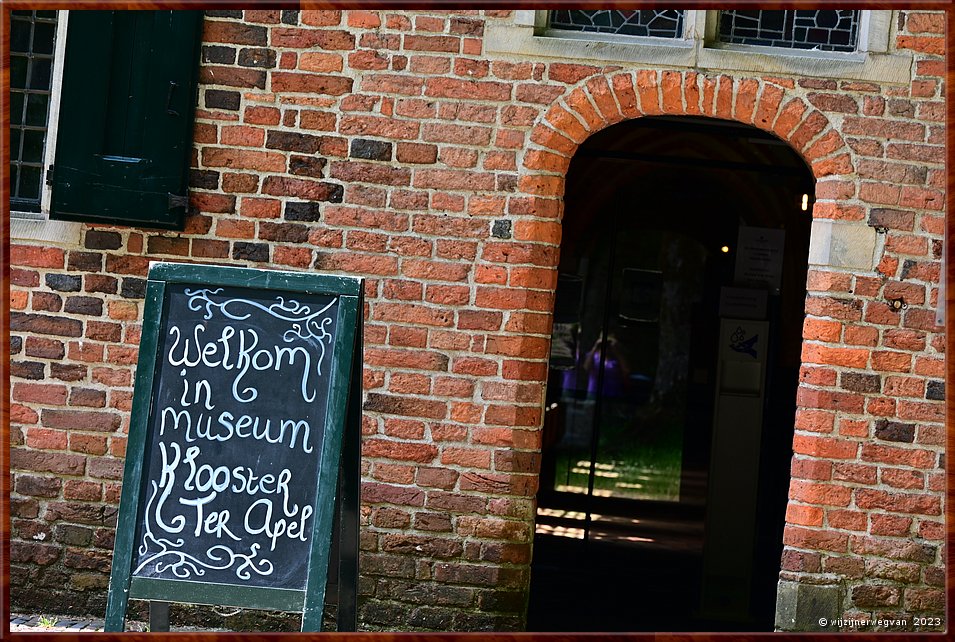 Welkom
in
museum
Klooster
Ter Apel
© wijzijnerwegvan 2023